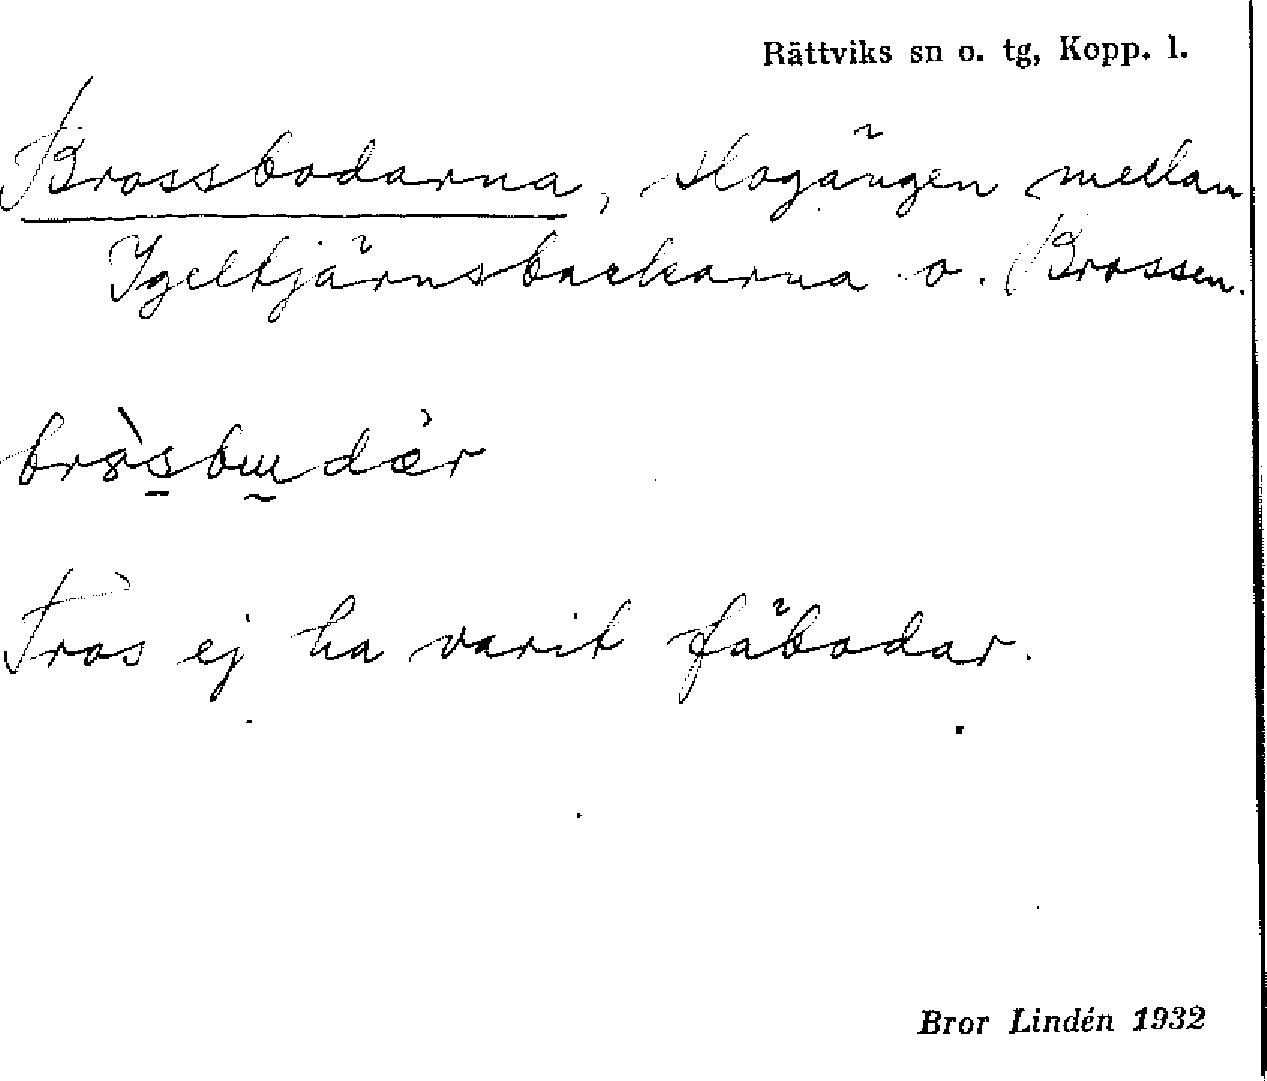 Rättviks sn o. tg, Kopp. l.
Brossbodarna, slogången mellan
Igeltjärnsbackarna o. Brossen.
Tros ej ha varit fäbodar.
Bror Lindén 1932